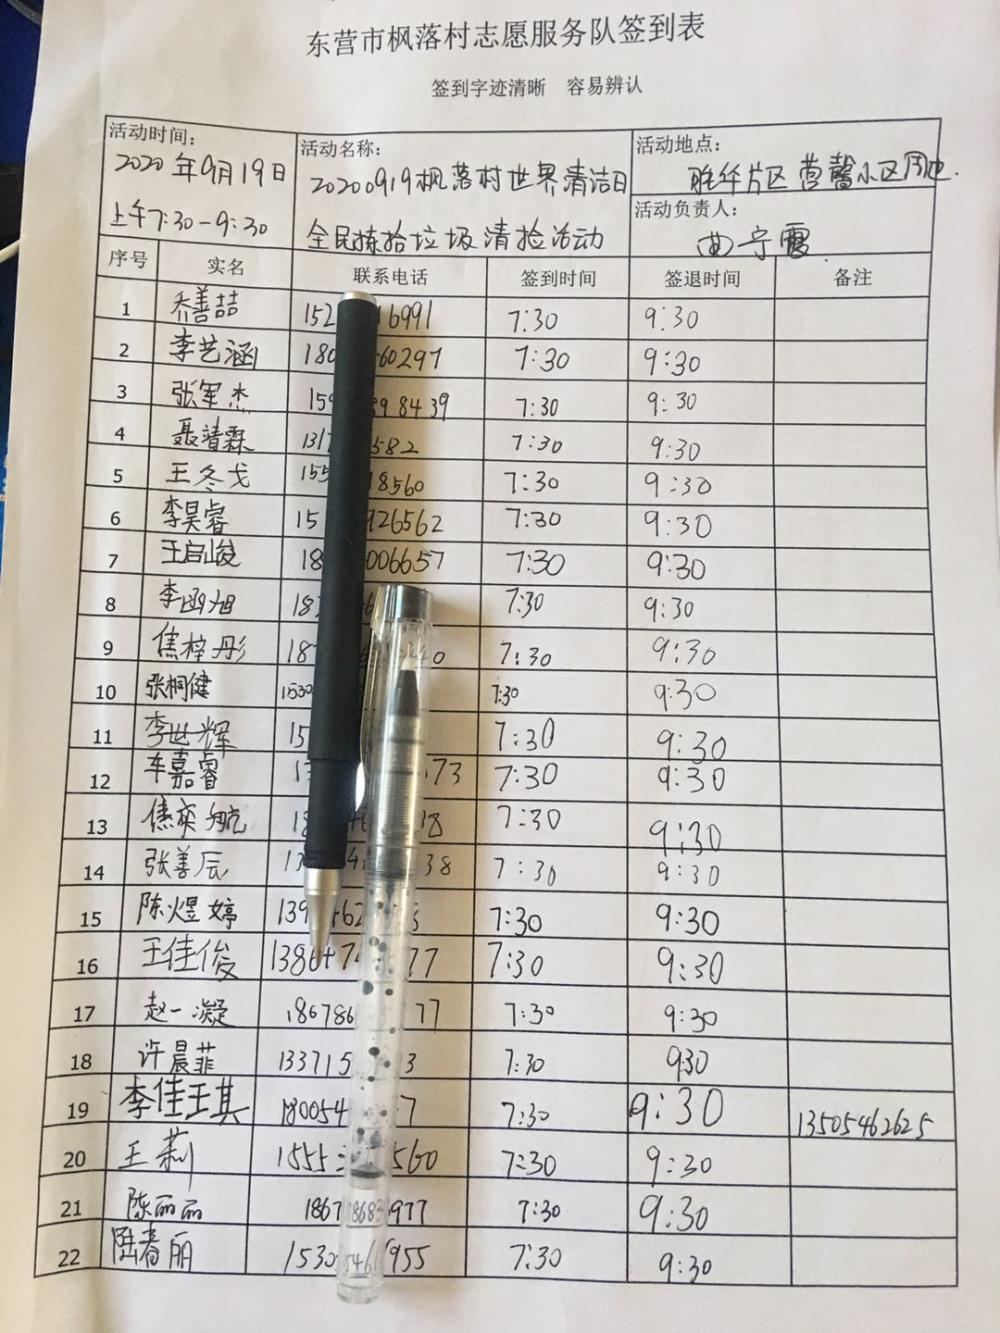 东营市枫落村志愿服务队签到表
签到字迹清晰 容易辨认
活动时间: 活动名称: 活动地点:
2020年9月19日 20200919枫落村世界清洁日 胜华片区营馨小区周边.
上午7:30-9:30 全民拣拾垃圾清捡活动 活动负责人:
曲宁霞
序号 实名 联系电话 签到时间 签退时间 备注
1 乔善喆 152 16991 7:30 9:30
2 李艺涵 180 60297 7:30 9:30
3 张军杰 159 998439 7:30 9:30
4 聂靖霖 1317 582 7:30 9:30
5 王冬戈 155 18560 7:30 9:30
6 李昊睿 15 926562 7:30 9:30
7 王启峻 18 006657 7:30 9:30
8 李函旭 7:30 9:30
9 焦梓彤 187 40 7:30 9:30
10 张桐健 1530 7:30 9:30
11 李世辉 15 7:30 9:30
12 车嘉睿 13 73 7:30 9:30
13 焦奕航 18 38 7:30 9:30
14 张善辰 13 38 7:30 9:30
15 陈煜婷 139 62 7:30 9:30
16 王佳俊 138647 77 7:30 9:30
17 赵一凝 186786 77 7:30 9:30
18 许晨菲 133715 3 7:30 9:30
19 李佳琪 180054 7 7:30 9:30 13505462625
20 王莉 1555 560 7:30 9:30
21 陈丽丽 1867 8683 977 7:30 9:30
22 陆春丽 1530 546 955 7:30 9:30